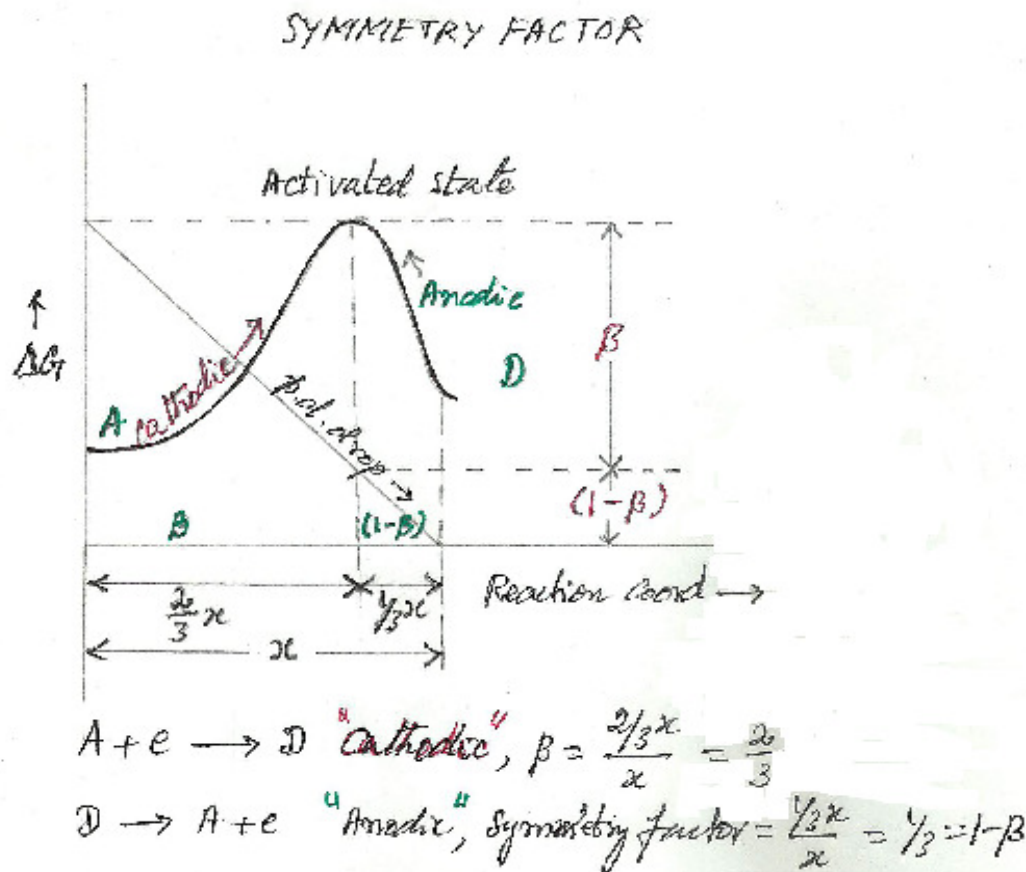 SYMMETRY FACTOR
Activated state
Anodic
↑
ΔG
β
A
cathodic →
D
p.d. drop →
β
(1-β)
(1-β)
2/3 x
1/3 x
Reaction Coord →
x
A + e → D "Cathodic", β = 2/3x / x = 2/3
D → A + e "Anodic", Symmetry factor = 1/3x / x = 1/3 = 1-β